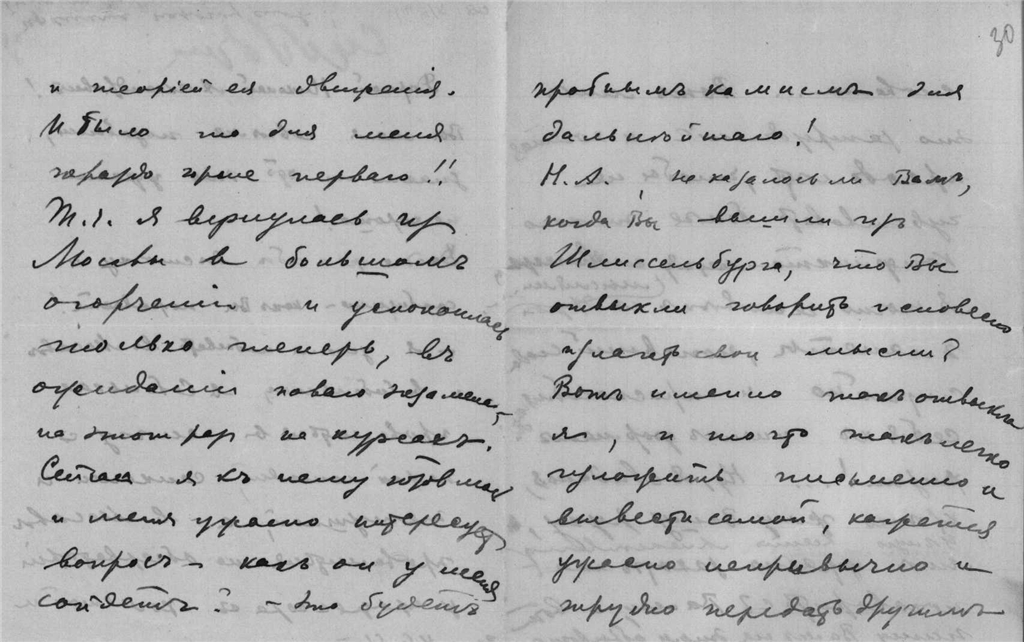 и теорiей ея движенiя.
И было то для меня
гораздо горше перваго!!
Т. ч. я вернулась из
Москвы в большомъ
огорченiи и успокоилась
только теперь, въ
ожиданiи новаго экзамена,
на этот раз на курсахъ.
Сейчас я къ нему готовлюсь
и меня ужасно интересует
вопросъ – какъ он у меня
сойдетъ? – это будетъ
30
пробнымъ камнемъ для
дальнѣйшаго!
Н. А., не казалось ли Вамъ,
когда Вы вышли изъ
Шлиссельбурга, что Вы
отвыкли говорить и словесно
излагать свои мысли?
Вотъ именно такъ отвыкла
я, и то что такъ легко
изложить письменно и
вывести самой, кажется
ужасно непривычно и
трудно передать другимъ